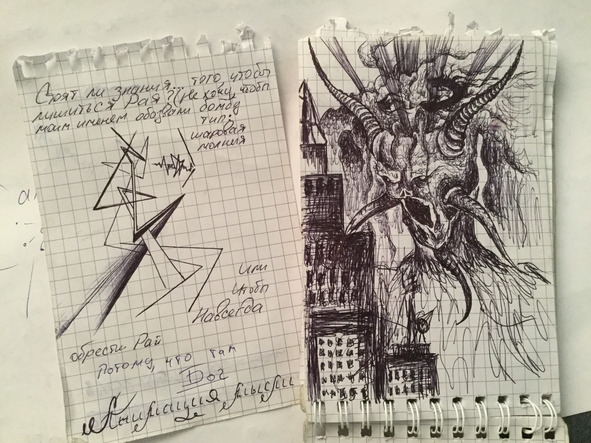 Стоят ли знания, того, чтобы
лишиться Рая?! (Не хочу, чтобы
моим именем обозвали бомбу
тип:
шаровая
молния
или
чтобы
Навсегда
обрести Рай
Потому, что так
Анимация мысли